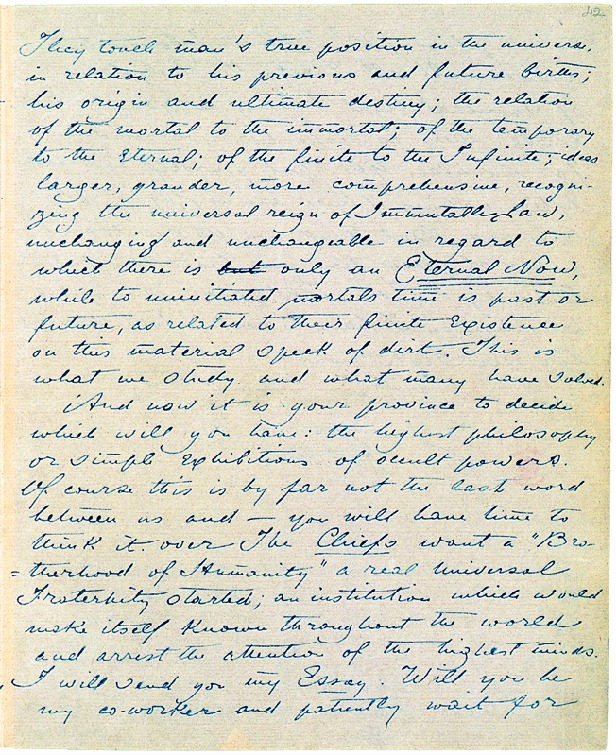 42
They touch man's true position in the universe,
in relation to his previous and future births;
his origin and ultimate destiny; the relation
of the mortal to the immortal; of the temporary
to the Eternal; of the finite to the Infinite; ideas
larger, grander, more comprehensive, recogni-
zing the universal reign of Immutable Law,
unchanging and unchangeable in regard to
which there is but only an Eternal Now,
while to uninitiated mortals time is past or
future, as related to their finite existence
on this material speck of dirt. This is
what we study and what many have solved.
And now it is your province to decide
which will you have: the highest philosophy
or simple exhibitions of occult powers.
Of course this is by far not the last word
between us and — you will have time to
think it over. The Chiefs want a "Bro-
=therhood of Humanity" a real Universal
Fraternity started; an institution which would
make itself known throughout the world
and arrest the attention of the highest minds.
I will send you my Essay. Will you be
my co-worker and patiently wait for